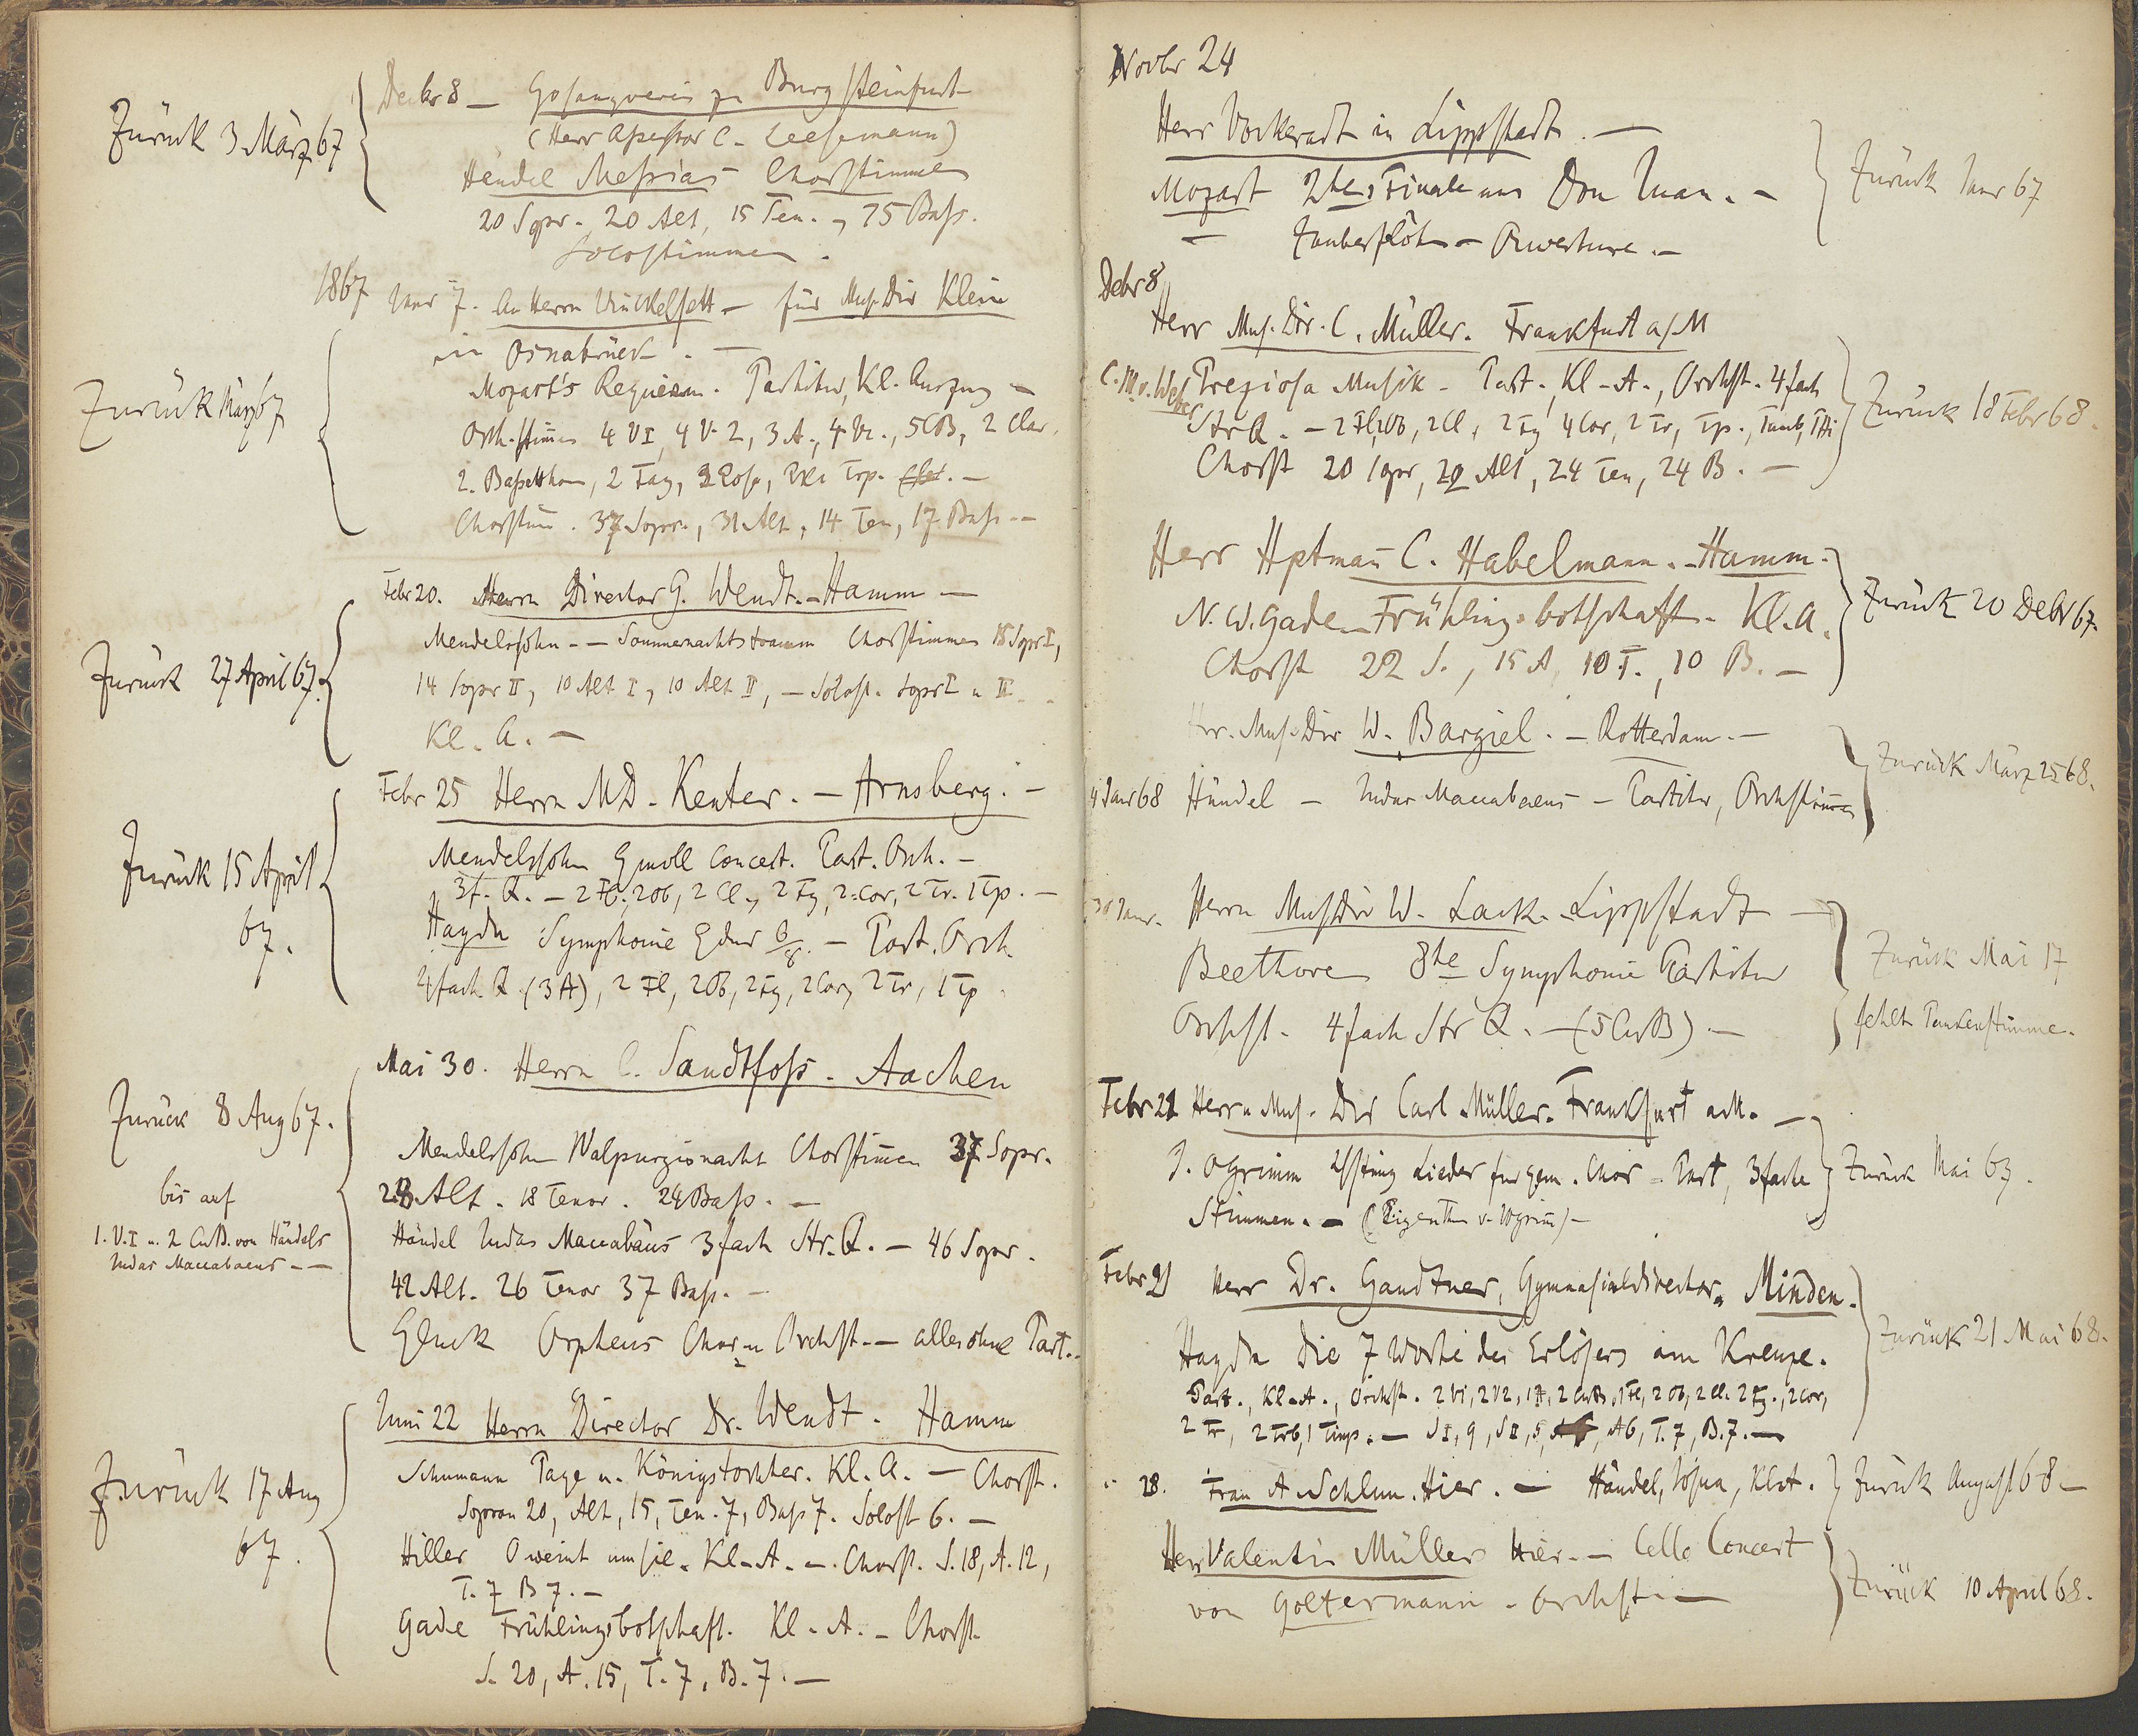 Decbr 8 — Gesangverein zu Burgsteinfurt
Zurück 3 März 67
(Herr Assessor C. Leesemann)
Händel Messias Chorstimmen
20 Sopr. 20 Alt, 15 Ten., 15 Bass.
Solostimmen.
1867 Janr 7. An Herrn Vinckelsett — für Mus. Dir Klein
in Osnabrück. —
Zurück März 67
Mozart's Requiem. Partitur, Kl. Auszug —
Orch. stimmen 4 V I, 4 V 2, 3 A., 4 Vc., 5 CB, 2 Clar.
2. Bassetthorn, 2 Fag, 3 Pos, 2 Trp.
Chorstim̄. 37 Sopr., 31 Alt, 14 Ten, 17 Bass —
Febr 20. Herrn Director G. Wendt. — Hamm —
Zurück 27 April 67.
Mendelssohn — Sommernachtstraum Chorstimmen 18 Sopr I,
14 Sopr II, 10 Alt I, 10 Alt II, — Solost. Sopr I u II
Kl. A. —
Febr 25 Herrn MD. Kenter. — Arnsberg. —
Zurück 15 April 67.
Mendelssohn Gmoll Concert. Part. Orch. —
3f. Q. — 2 Fl., 2 Ob, 2 Cl., 2 Fg, 2 Cor, 2 Tr. 1 Tp. —
Haydn Symphonie Gdur 6/8. — Part. Orch
4 fach Q. (3 A), 2 Fl, 2 Ob, 2 Fg, 2 Cor, 2 Tr, 1 Tp
Mai 30. Herrn C. Sandtfoss. Aachen
Zurück 8 Aug 67.
bis auf
1. V. I u. 2 CuB. von Händels
Judas Maccabaeus —
Mendelssohn Walpurgisnacht Chorstim̄en 37 Sopr.
28 Alt. 18 Tenor. 24 Bass. —
Händel Judas Maccabäus 3 fach Str. Q. — 46 Sopr.
42 Alt. 26 Tenor 37 Bass. —
Gluck Orpheus Chor u Orchst. — alles ohne Part.
Juni 22 Herrn Director Dr. Wendt. Hamm
Zurück 17 Aug 67.
Schumann Page u. Königstochter. Kl. A. — Chorst.
Sopran 20, Alt, 15, Ten. 7, Bass 7. Solost 6. —
Hiller O weint um sie. Kl. A. —. Chorst. S. 18, A. 12,
T. 7 B 7. —
Gade Frühlingsbotschaft. Kl. A. — Chorst.
S. 20, A. 15, T. 7, B. 7. —
Novbr 24
Herr Vockeradt in Lippstadt. —
Mozart 2tes Finale aus Don Juan. —
Zurück Janr 67
— Zauberflöte — Ouverture. —
Debr 8
Herr Mus. Dir. C. Müller. Frankfurt a/M
C. M. v. Weber Preziosa Musik — Part., Kl. A., Orchst. 4 fach
Str Q. — 2 Fl, 2 Ob, 2 Cl, 2 Fg 4 Cor, 2 Tr, Tp., Tamb,
Zurück 18 Febr 68.
Chorst 20 Sopr, 22 Alt, 24 Ten, 24 B. —
Herr Hptman̄ C. Habelmann. — Hamm.
N. W. Gade — Frühlingsbotschaft. Kl. A.
Zurück 20 Debr 67.
Chorst 22 S., 15 A, 10 T., 10 B. —
Hr. Mus. Dir W. Bargiel. — Rotterdam. —
4 Janr 68 Händel — Judas Maccabaeus — Partitur, Orchstim̄en
Zurück März 25 68.
30 Janr. Herrn Mus Dir W. Lack. Lippstadt —
Beethoven 8te Symphonie Partitur
Zurück Mai 17
Orchst. 4 fach Str Q. — (5 CuB) —
fehlt Paukenstimme.
Febr 21 Herrn Mus. Dir Carl Müller. Frankfurt a M. —
J. O Grimm Lieder für gem. Chor — Part, 3 fache
Zurück Mai 69.
Stimmen. — (Eigenth v. O Grim̄) —
Febr 21 Herr Dr. Gandtner, Gymnasialdirector. Minden.
Haydn Die 7 Worte des Erlösers am Kreuze.
Zurück 21 Mai 68.
Part., Kl. A., Orchst. 2 V1, 2 V2, 1 A, 2 CuB, 1 Fl, 2 Ob, 2 Cl. 2 Fg., 2 Cor,
2 Tr, 2 Trb, 1 Timp. — S I, 9, S II, 5, A 6, T. 7, B. 7. —
" 28. Frau A. Schlun. Hier. — Händel, Josua, Klat. Zurück August 68 —
Herr Valentin Müller Hier. — Cello Concert
von Goltermann — Orchst. —
Zurück 10 April 68.